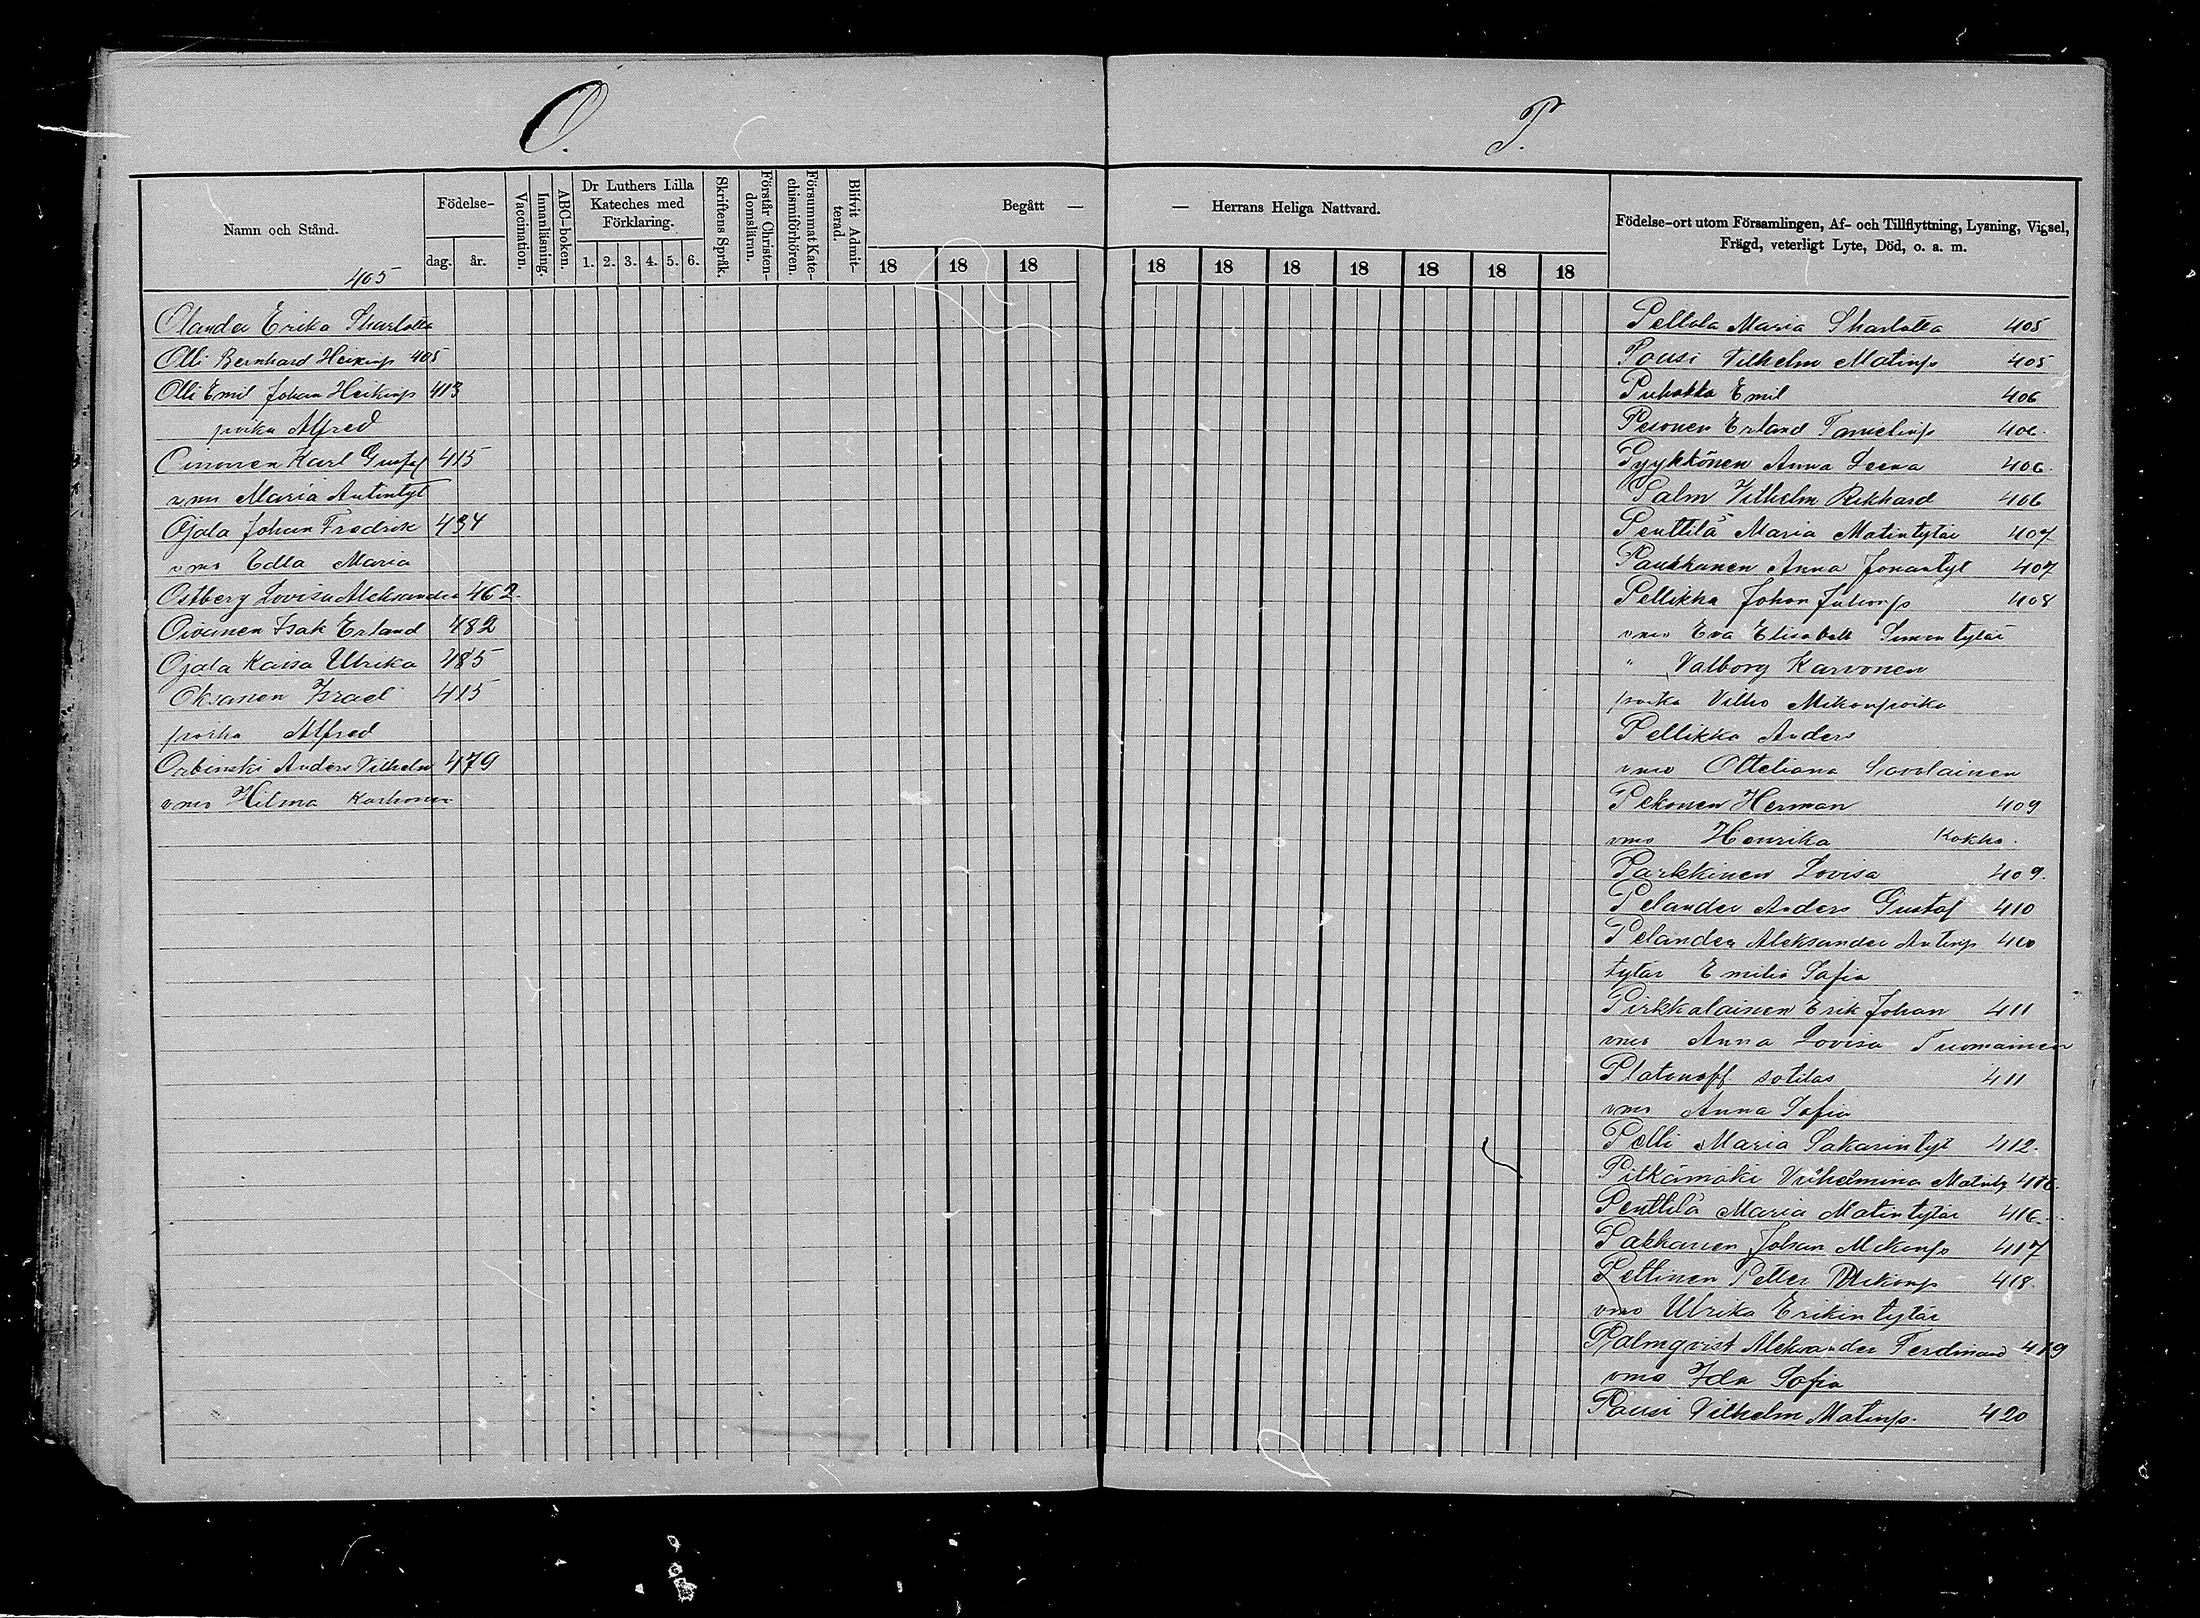 O.
Namn och Stånd.
Födelse-
dag.
år.
Vaccination.
Innanläsning.
ABC-boken.
Dr Luthers Lilla
Kateches med
Förklaring.
1. 2. 3. 4. 5. 6.
Skriftens Språk.
Förstår Christen-
domsläran.
Försummat Kate-
chismiförhören.
Blifvit Admit-
terad.
Begått —
18 18 18
405
Olander Erika Sharlotta
Olli Bernhard Heikinp 405
Olli Emil Johan Heikinp 413
poika Alfred
Oinonen Karl Gustaf 415
vmo Maria Antintyt
Ojala Johan Fredrik 434
vmo Edla Maria
Ostberg Lovisa Aleksandra 462.
Oivanen Isak Erland 482
Ojala Kaisa Ulrika 485
Oksanen Israel 415
poika Alfred
Orbinski Anders Vilhelm 479
vmo Hilma Korhonen
P.
— Herrans Heliga Nattvard.
18 18 18 18 18 18 18
Födelse-ort utom Församlingen, Af- och Tillflyttning, Lysning, Vigsel,
Frägd, veterligt Lyte, Död, o. a. m.
Pellola Maria Sharlotta 405
Pousi Vilhelm Matinp 405
Puhakka Emil 406
Pesonen Erland Tanelinp 406.
Pyykkönen Anna Leena 406.
Palm Vilhelm Rikhard 406
Penttilä Maria Matintytär 407
Paukkunen Anna Jonantyt 407
Pellikka Johan Juhonp 408
vmo Eva Elisabett Simontytär
" Valborg Karvonen
poika Vilho Mikonpoika
Pellikka Anders
vmo Otteliana
Pekonen Herman 409
vmo Henrika Kokko.
Parkkinen Lovisa 409.
Pelander Anders Gustaf 410
Pelander Aleksander Antinp 410
tytär Emilia Sofia
Pirkkalainen Erik Johan 411
vmo Anna Lovisa Tuomainen
Platonoff sotilas 411
vmo Anna Sofia
Pelli Maria Sakarintyt 412.
Pitkämäki Vilhelmina Matinty 416.
Penttilä Maria Matintytär 416.
Pakkanen Johan Mikonp 417
Pettinen Petter Mikonp 418.
vmo Ulrika Erikintytär
Palmqvist Aleksander Ferdinand 419
vmo Ida Sofia
Pousi Vilhelm Matinp. 420